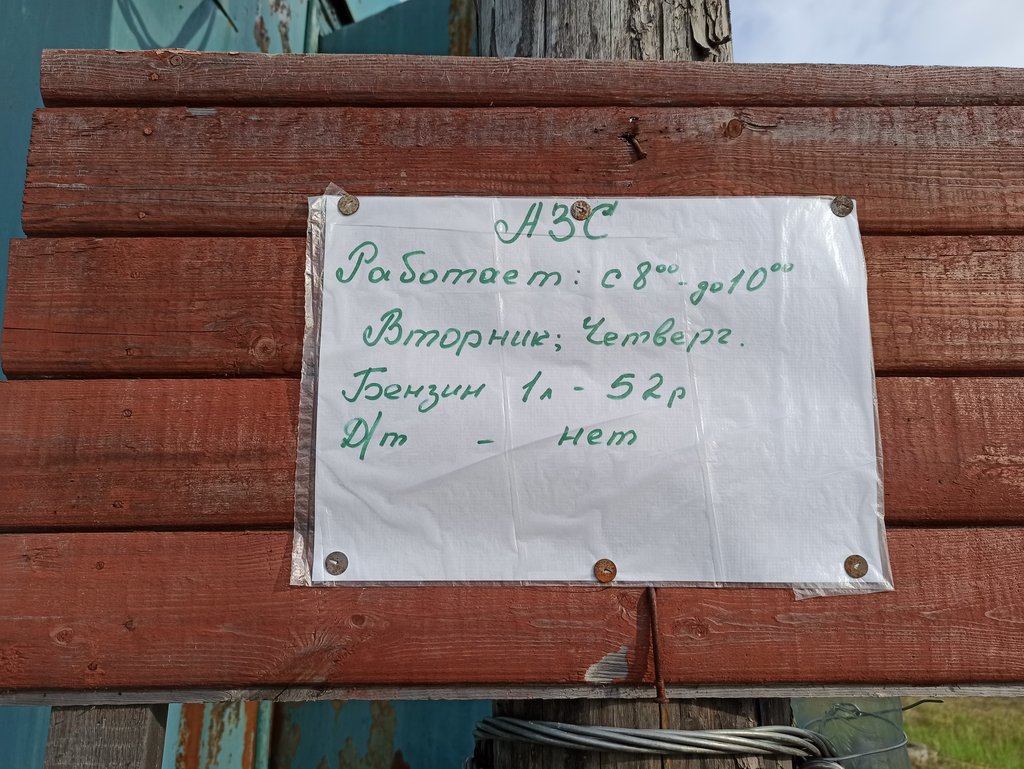 АЗС
Работает: с 8⁰⁰ - до 10⁰⁰
Вторник; Четверг.
Бензин 1л - 52р
Д/т - нет